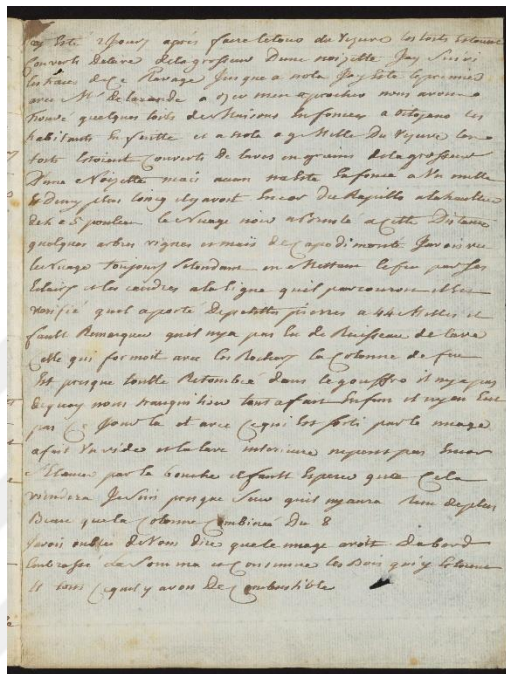 Jay Esté 2 Jours après faire le tour du Vesuve les toits Estoient
Couverts de lave de la grosseur Dune noizette Jay Suivi
les traces de Ce Ravage Jusque a nola Jay Esté le premier
avec Mr De lalande a oser men aprocher nous avons
trouvé quelques toits de Maisons Enfoncés a ottajano les
habitants En fuitte et a nola a 9 Mille du Vesuve les
toits Estoient Couverts de laves en grains de la grosseur
Dune Noizette mais aucun na Esté Enfoncé a Un mille
Et demy plus loing il y avoit Encor du Rapillo a la hauteur
de 4 a 5 pouces le Nuage noir a Brulé a Cette Distance
quelques arbres vignes et mais de Capodimonte Javois vu
le Nuage toujours Setendant en Mettant le feu par Ses
Eclairs et les cendres a la ligne quil parcouroit il Est
verifié quil a porté De petittes pierres a 44 Milles il
fault Remarquer quil ny a pas Eu de Ruisseau de lave
Celle qui formoit avec les Rochers la Colonne de feu
Est presque toutte Retombée dans le gouffre il ny a pas
De quoy nous tranquiliser tout a fait Enfin il ny en Eut
pas Ce Jour la et avec Ce qui Est Sorti par le nuage
a fait Un vide et la lave interieure ne peut pas Encor
Selancer par la bouche il fault Esperer que Cela
viendera Je Suis presque Seur quil ny aura rien de plus
Beau que la Colonne Combinée Du 8
Javois oublié de Vous dire que le nuage avoit Dabord
Embrassé La Somma et Consumé les Bois qui y Estoient
et tout Ce quil y avoit De Combustible